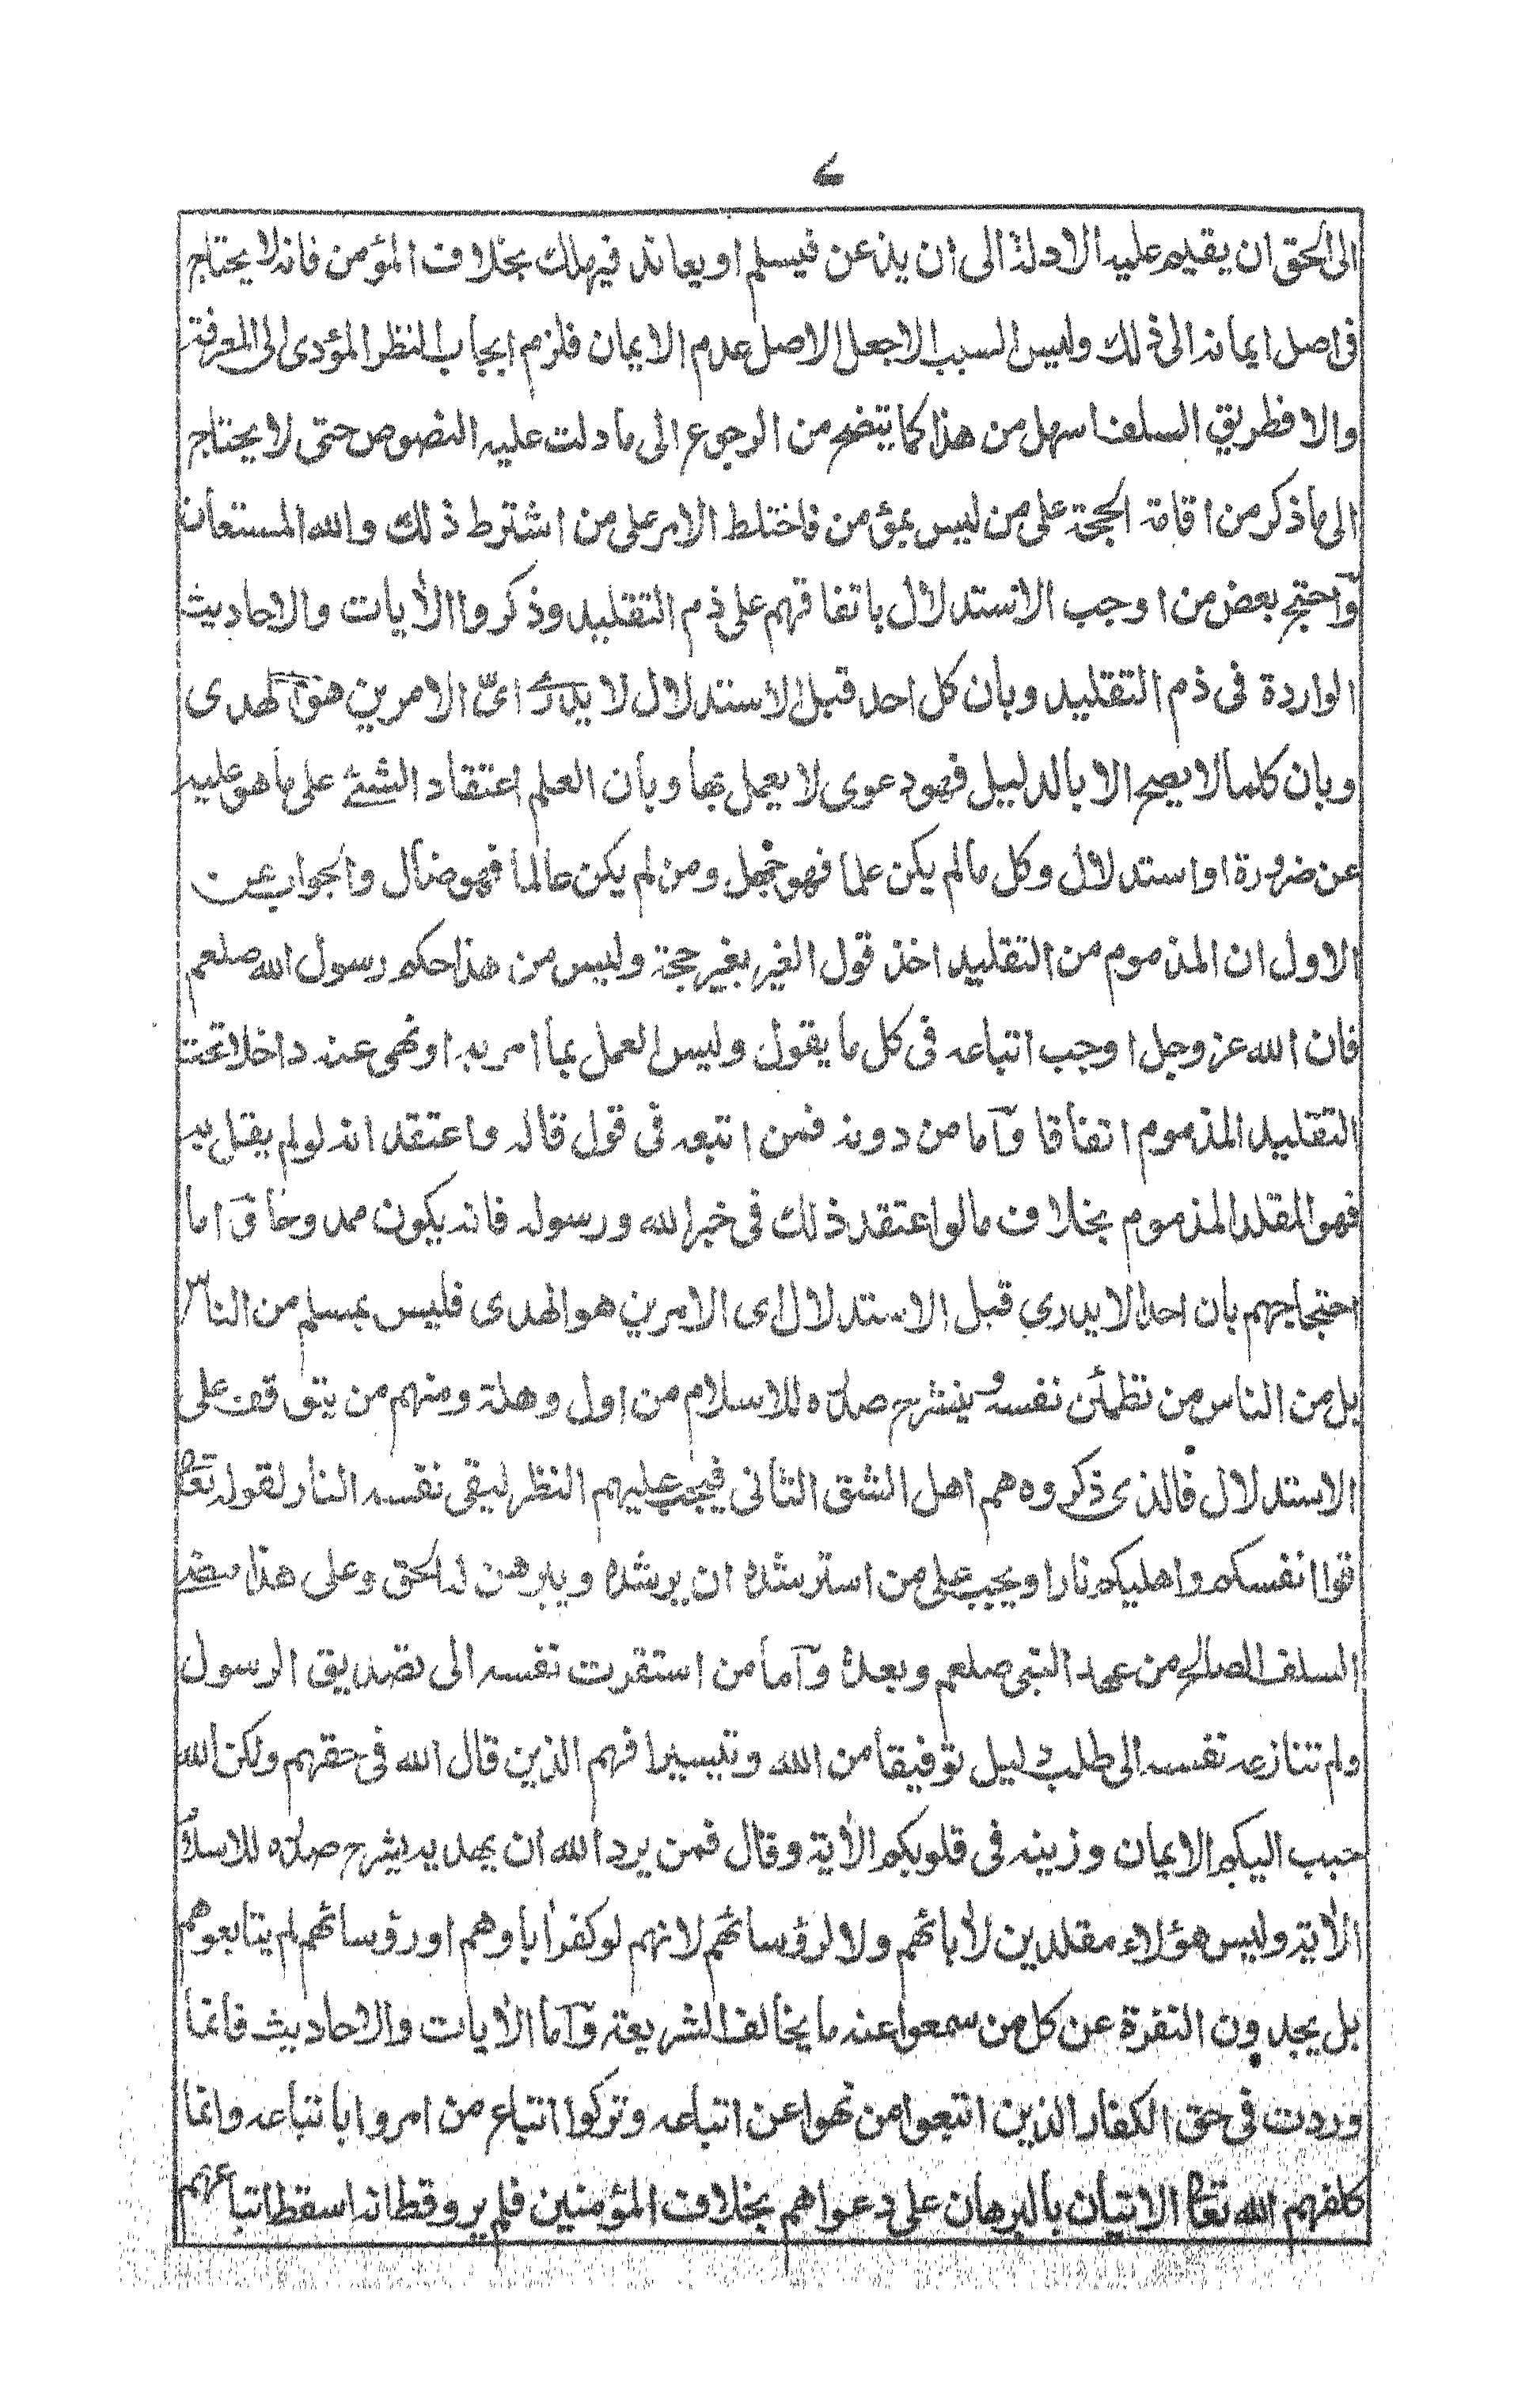 ٧
الى الحق ان يقيم عليه الادلة الى ان يذعن فيسلم او يعاند فيهلك بخلاف المؤمن فانه لا يحتاج
فى اصل ايمانه الى ذلك وليس السبب الاجعل الاصل عدم الايمان فلزم ايجاب النظر المؤدى الى المعرفة
والا فطريق السلف اسهل من هذا كما يتضح من الرجوع الى ما دلت عليه النصوص حتى لا يحتاج
الى ما ذكر من اقامة الحجة على من ليس بمؤمن فاختلط الامر على من اشترط ذلك والله المستعان
وآحتج بعض من اوجب الاستدلال باتفاقهم على ذم التقليد وذكروا الأيات والاحاديث
الواردة فى ذم التقليد وبان كل احد قبل الاستدلال لا يدرى اىّ الامرين هو الهدى
وبان كلما لا يصح الا بالدليل فهو دعوى لا يعمل بها وبان العلم اعتقاد الشئ على ما هو عليه
عن ضرورة او استدلال وكل مالم يكن علما فهو جهل ومن لم يكن عالما فهو ضال والجواب عن
الاول ان المذموم من التقليد اخذ قول الغير بغير حجة وليس من هذا حكم رسول الله صلعم
فان الله عز وجل اوجب اتباعه فى كل ما يقول وليس العمل بما امر به او نهى عنه داخلا تحت
التقليد المذموم اتفاقا وآما من دونه فمن اتبعه فى قول قاله واعتقد انه لو لم يقل به
فهو المقلد المذموم بخلاف ما لو اعتقد ذلك فى خبر الله ورسوله فانه يكون ممدوحا وآما
احتجاجهم بان احدا لا يدرى قبل الاستدلال اى الامرين هو الهدى فليس بمسلم من الناس
بل من الناس من تطمئن نفسه وينشرح صدره للاسلام من اول وهلة ومنهم من يتوقف على
الاستدلال فالذى ذكروه هم اهل الشق الثانى فيجب عليهم النظر ليقى نفسه النار لقوله تعا
قوا انفسكم واهليكم نارا ويجب على من استرشده ان يرشده ويبرهن له الحق وعلى هذا مضى
السلف الصالح من عهد النبى صلعم وبعده وآما من استقرت نفسه الى تصديق الرسول
ولم تنازعه نفسه الى طلب دليل توفيقا من الله وتيسيرا فهم الذين قال الله فى حقهم ولكن الله
حبب اليكم الايمان وزينه فى قلوبكم الأية وقال فمن يرد الله ان يهديه يشرح صدره للاسلام
الأية وليس هؤلاء مقلدين لأبائهم ولا لرؤسائهم لانهم لو كفر أباوهم او رؤسائهم لم يتابعوهم
بل يجدون النفرة عن كل من سمعوا عنه ما يخالف الشريعة وآما الأيات والاحاديث فانما
وردت فى حق الكفار الذين اتبعوا من نهوا عن اتباعه وتركوا اتباع من امروا باتباعه وانما
كلفهم الله تعا الاتيان بالبرهان على دعواهم بخلاف المؤمنين فلم يرو قط انه اسقط اتباعهم